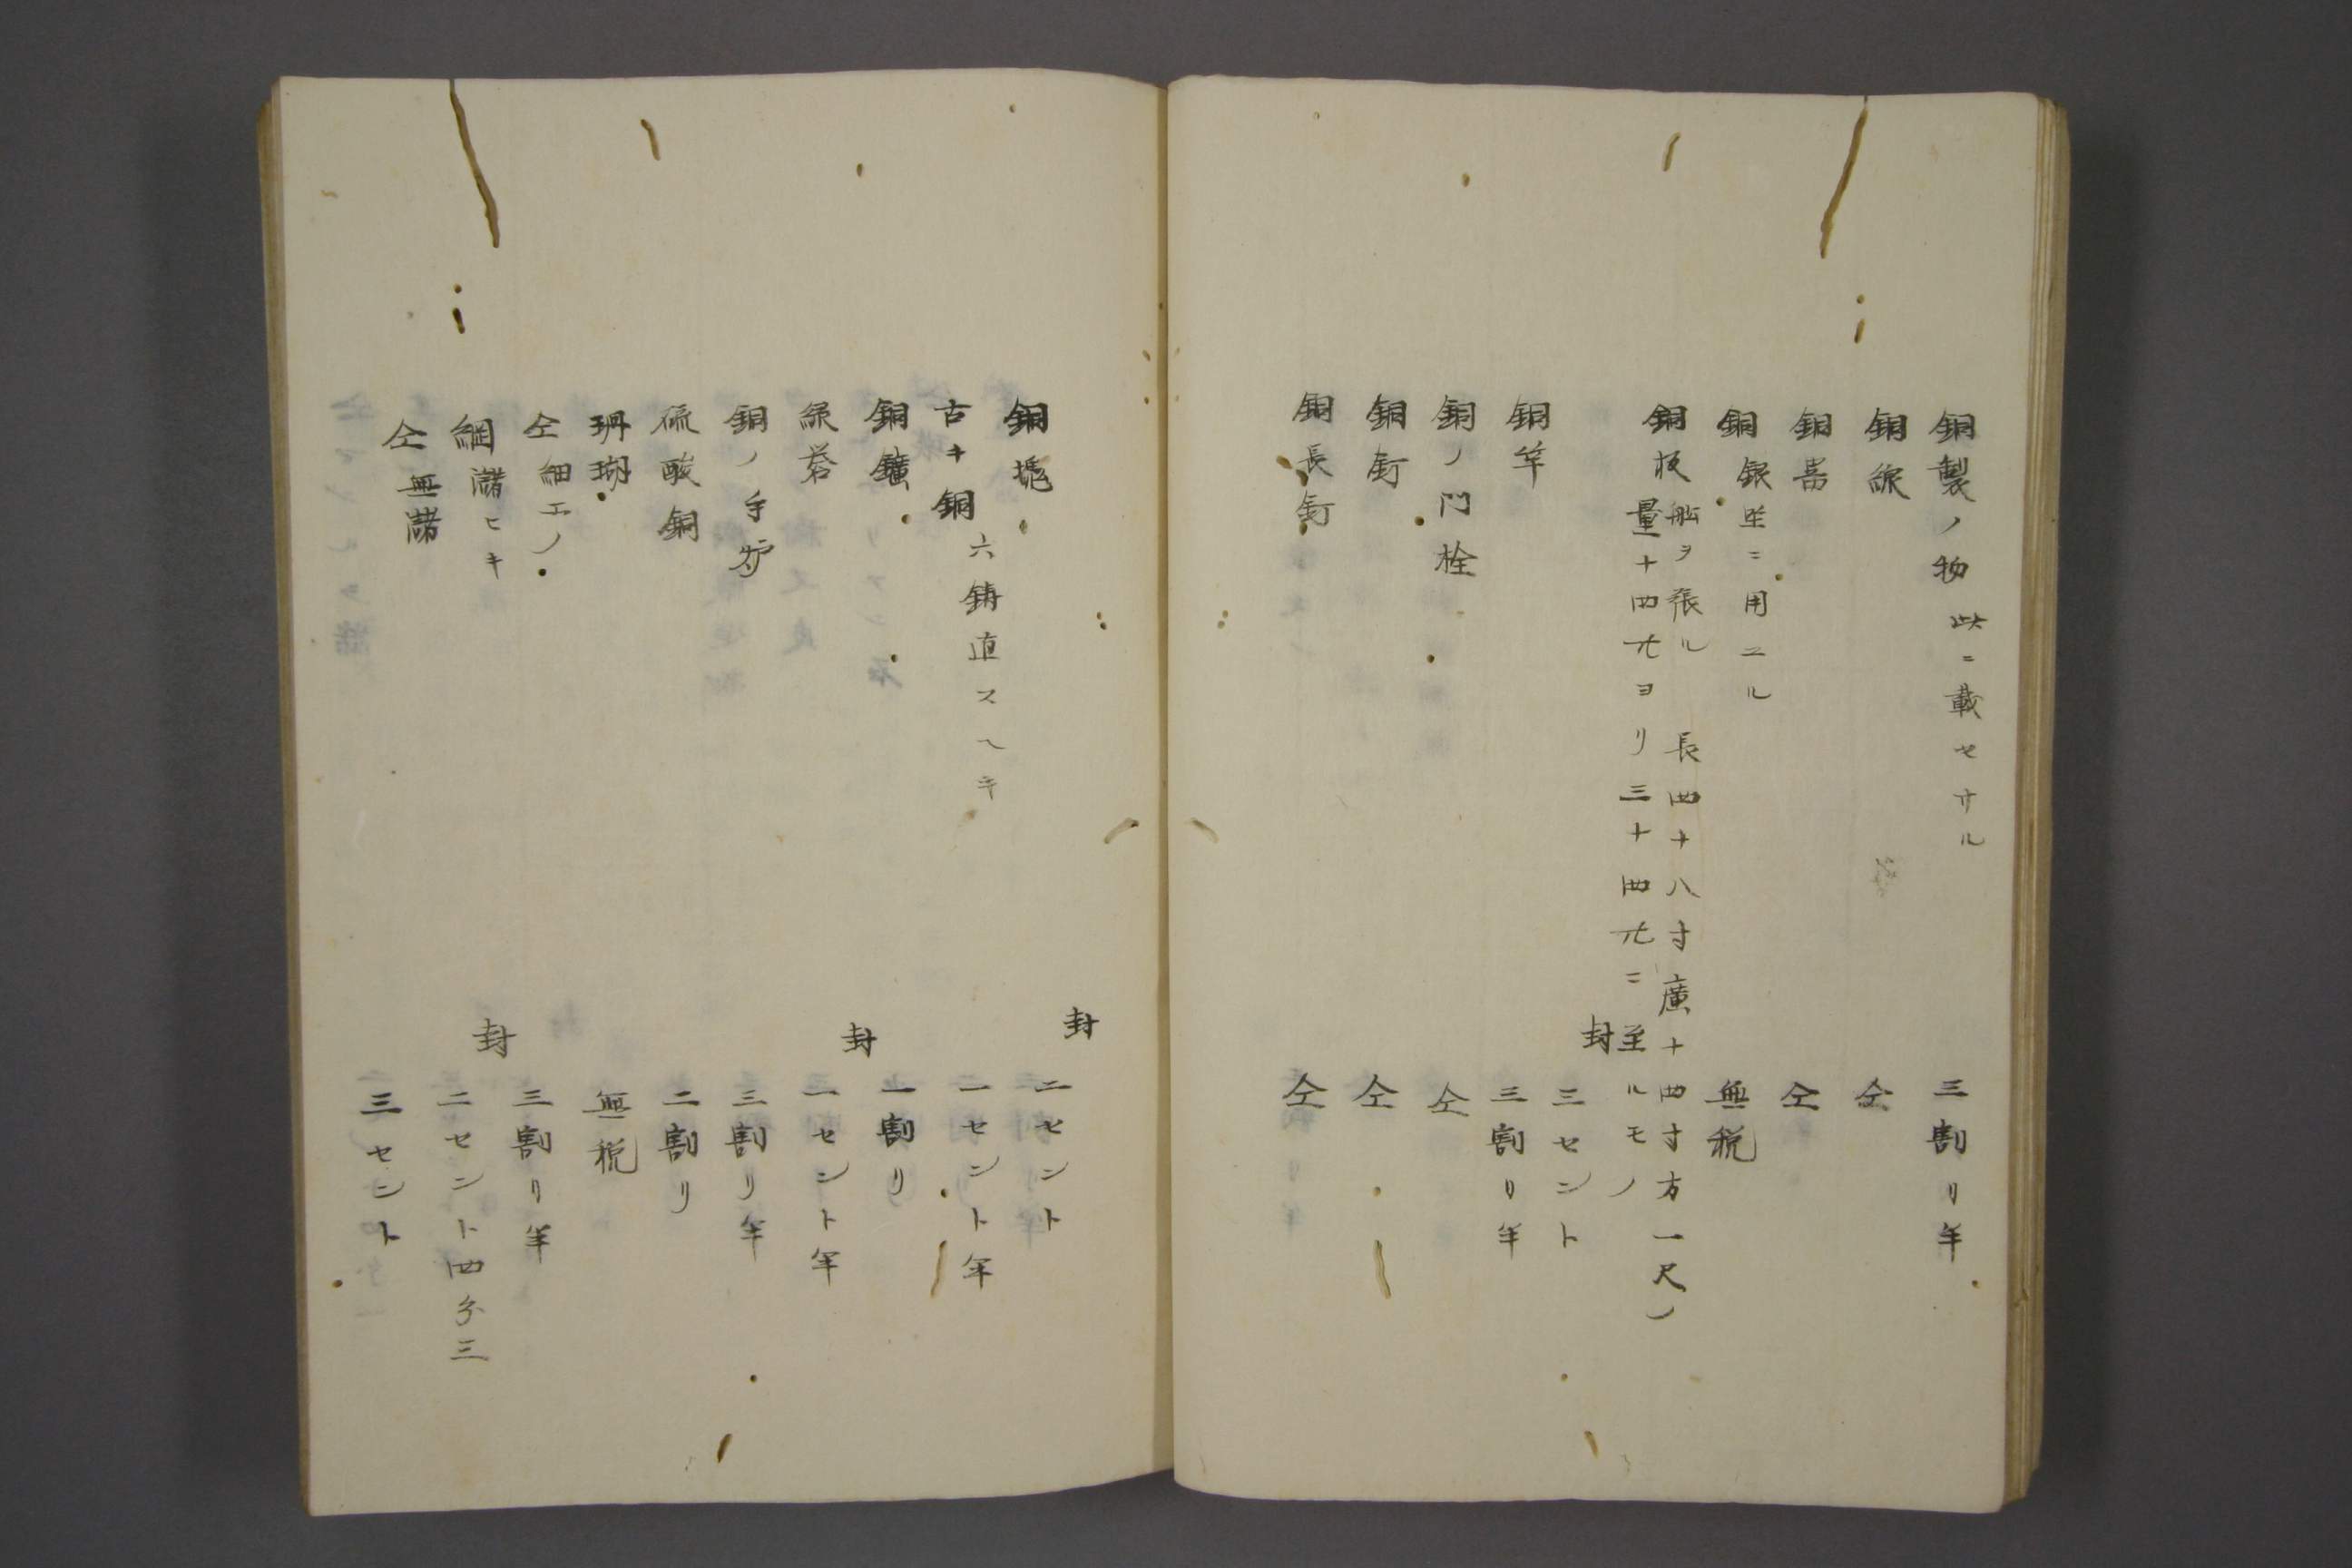 銅製ノ物 此ニ載セサル 三割リ半
銅線 仝
銅器 仝
銅 銀匠ニ用ユル 無税
銅板 船ヲ張ル 長四十八寸廣十四寸方一尺ノ
量十四兀ヨリ三十四兀ニ至ルモノ
封 三セント
銅竿 三割リ半
銅ノ閂栓 仝
銅釘 仝
銅長釘 仝
銅塊 封 二セント
古キ銅 六鋳直スヘキ 一セント半
銅鑛 一割リ
緑礬 封 一セント半
銅ノ手炉 三割リ半
硫酸銅 二割リ
珊瑚 無税
仝細工ノ 三割リ半
綱 瀦ヒキ 封 二セント四分三
仝無瀦 三セント